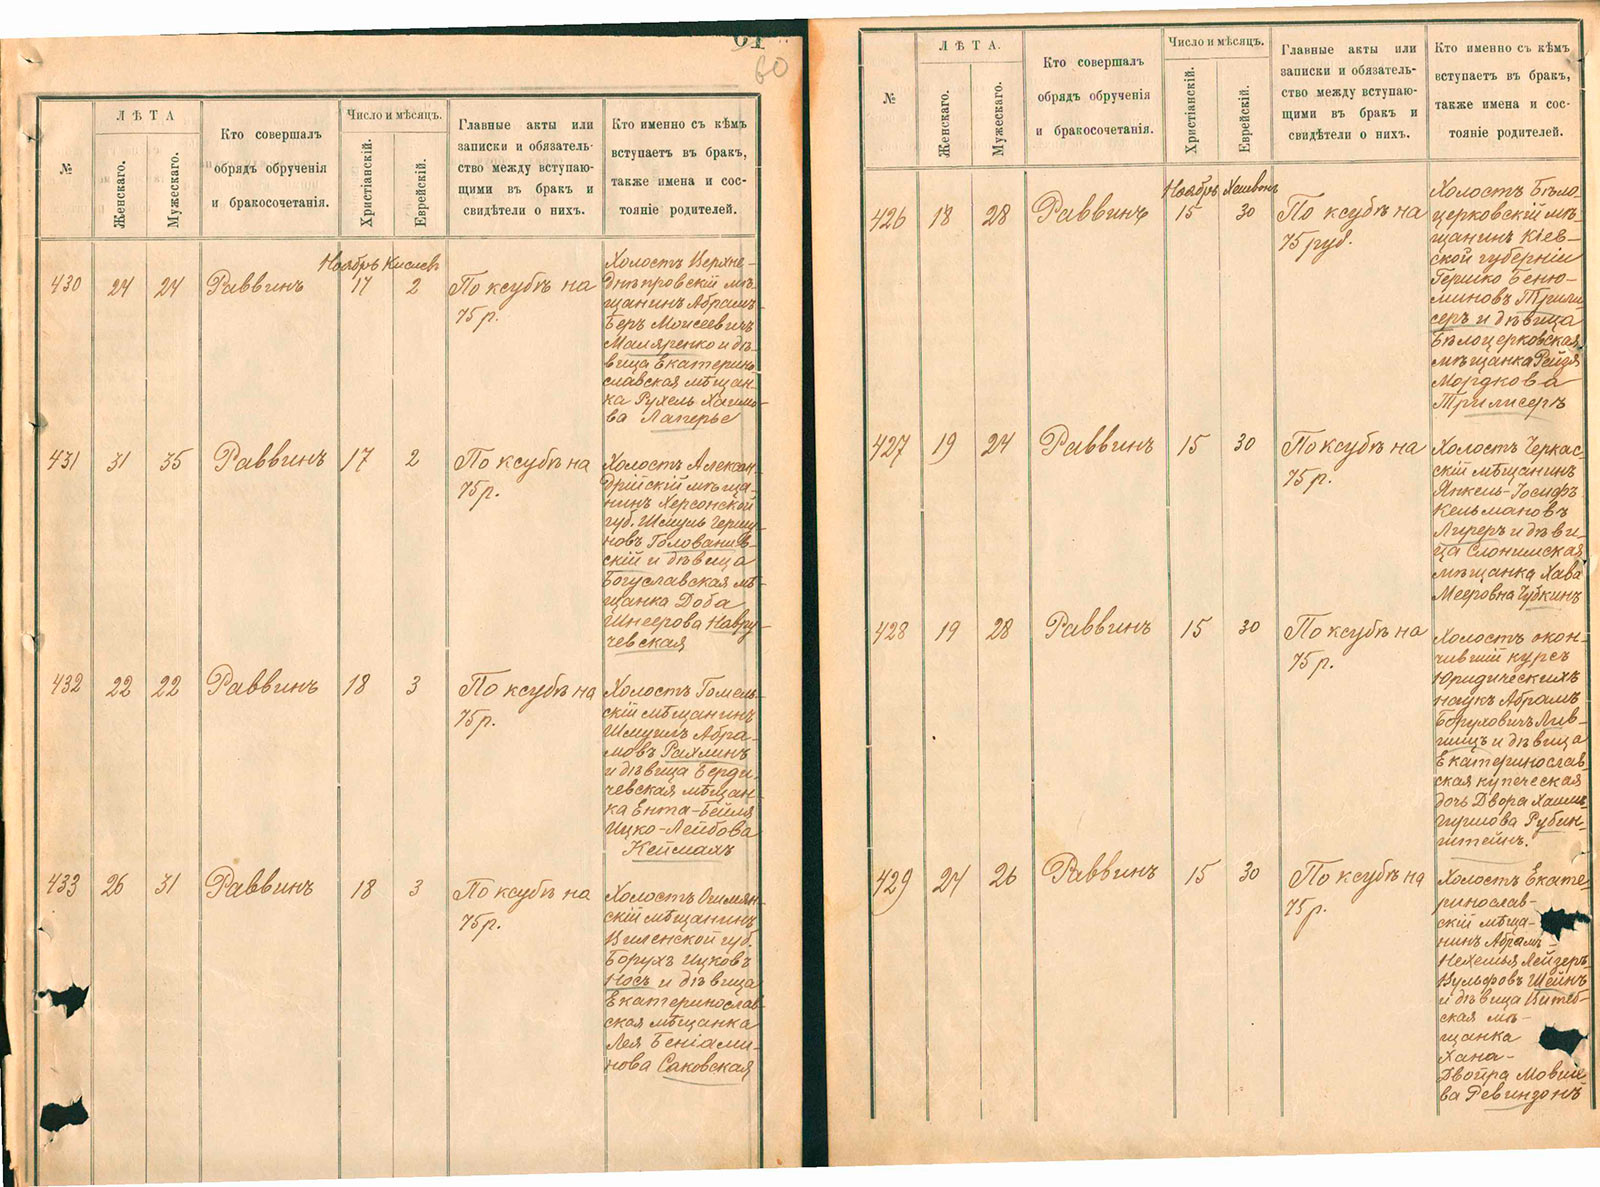 60
№
ЛѢТА
Женскаго.
Мужескаго.
Кто совершалъ
обрядъ обрученія
и бракосочетанія.
Число и мѣсяцъ.
Христіанскій.
Еврейскій.
Главные акты или
записки и обязатель-
ство между вступаю-
щими въ бракъ и
свидѣтели о нихъ.
Кто именно съ кѣмъ
вступаетъ въ бракъ,
также имена и сос-
тояніе родителей.
Ноябрь Кислев
430 24 24 Раввинъ 17 2
По ксубѣ на
75 р.
Холостъ Верхне-
днѣпровскій мѣ-
щанинъ Абрамъ
Беръ Моисеевичъ
Маляренко и дѣ-
вица Екатерино-
славская мѣщан-
ка Рухель Хаимо-
ва Лаперье
431 31 35 Раввинъ 17 2
По ксубѣ на
75 р.
Холостъ Алексан-
дрійскій мѣща-
нинъ Херсонской
губ. Шмуль Гершу-
новъ Голованив-
скій и дѣвица
Богуславская мѣ-
щанка Доба
Шнеерова Навру-
чевская
432 22 22 Раввинъ 18 3
По ксубѣ на
75 р.
Холостъ Гомель-
скій мѣщанинъ
Шмуилъ Абра-
мовъ Рахлинъ
и дѣвица Берди-
чевская мѣщан-
ка Ента-Бейля
Ицко-Лейбова
Кеймахъ
433 26 31 Раввинъ 18 3
По ксубѣ на
75 р.
Холостъ Ошмян-
скій мѣщанинъ
Виленской губ.
Борухъ Ицковъ
Носъ и дѣвица
Екатеринослав-
ская мѣщанка
Лея Беніами-
нова Саковская
№
ЛѢТА.
Женскаго.
Мужескаго.
Кто совершалъ
обрядъ обрученія
и бракосочетанія.
Число и мѣсяцъ.
Христіанскій.
Еврейскій.
Главные акты или
записки и обязатель-
ство между вступаю-
щими въ бракъ и
свидѣтели о нихъ.
Кто именно съ кѣмъ
вступаетъ въ бракъ,
также имена и сос-
тояніе родителей.
Ноябрь Хешвонъ
426 18 28 Раввинъ 15 30
По ксубѣ на
75 руб.
Холостъ Бѣло-
церковскій мѣ-
щанинъ Кіев-
ской губерніи
Гершко Беню-
миновъ Трили-
серъ и дѣвица
Бѣлоцерковская
мѣщанка Рейзя
Мордкова
Трилисеръ
427 19 24 Раввинъ 15 30
По ксубѣ на
75 р.
Холостъ Черкас-
скій мѣщанинъ
Янкель-Іосифъ
Кельмановъ
Лиреръ и дѣви-
ца Слонимская
мѣщанка Хава
Мееровна Чубкинъ
428 19 28 Раввинъ 15 30
По ксубѣ на
75 р.
Холостъ окон-
чившій курсъ
Юридическихъ
наукъ Абрамъ
Боруховичъ Лив-
шицъ и дѣвица
Екатеринослав-
ская купеческая
дочь Двора Хаимъ-
Гиршова Рубин-
штейнъ.
429 24 26 Раввинъ 15 30
По ксубѣ на
75 р.
Холостъ Екате-
ринослав-
скій мѣща-
нинъ Абрамъ-
Нехемья Лейзеръ-
Вульфовъ Шейнъ
и дѣвица Витеб-
ская мѣ-
щанка
Хана-
Двойра Мовше-
ва Ревинзонъ